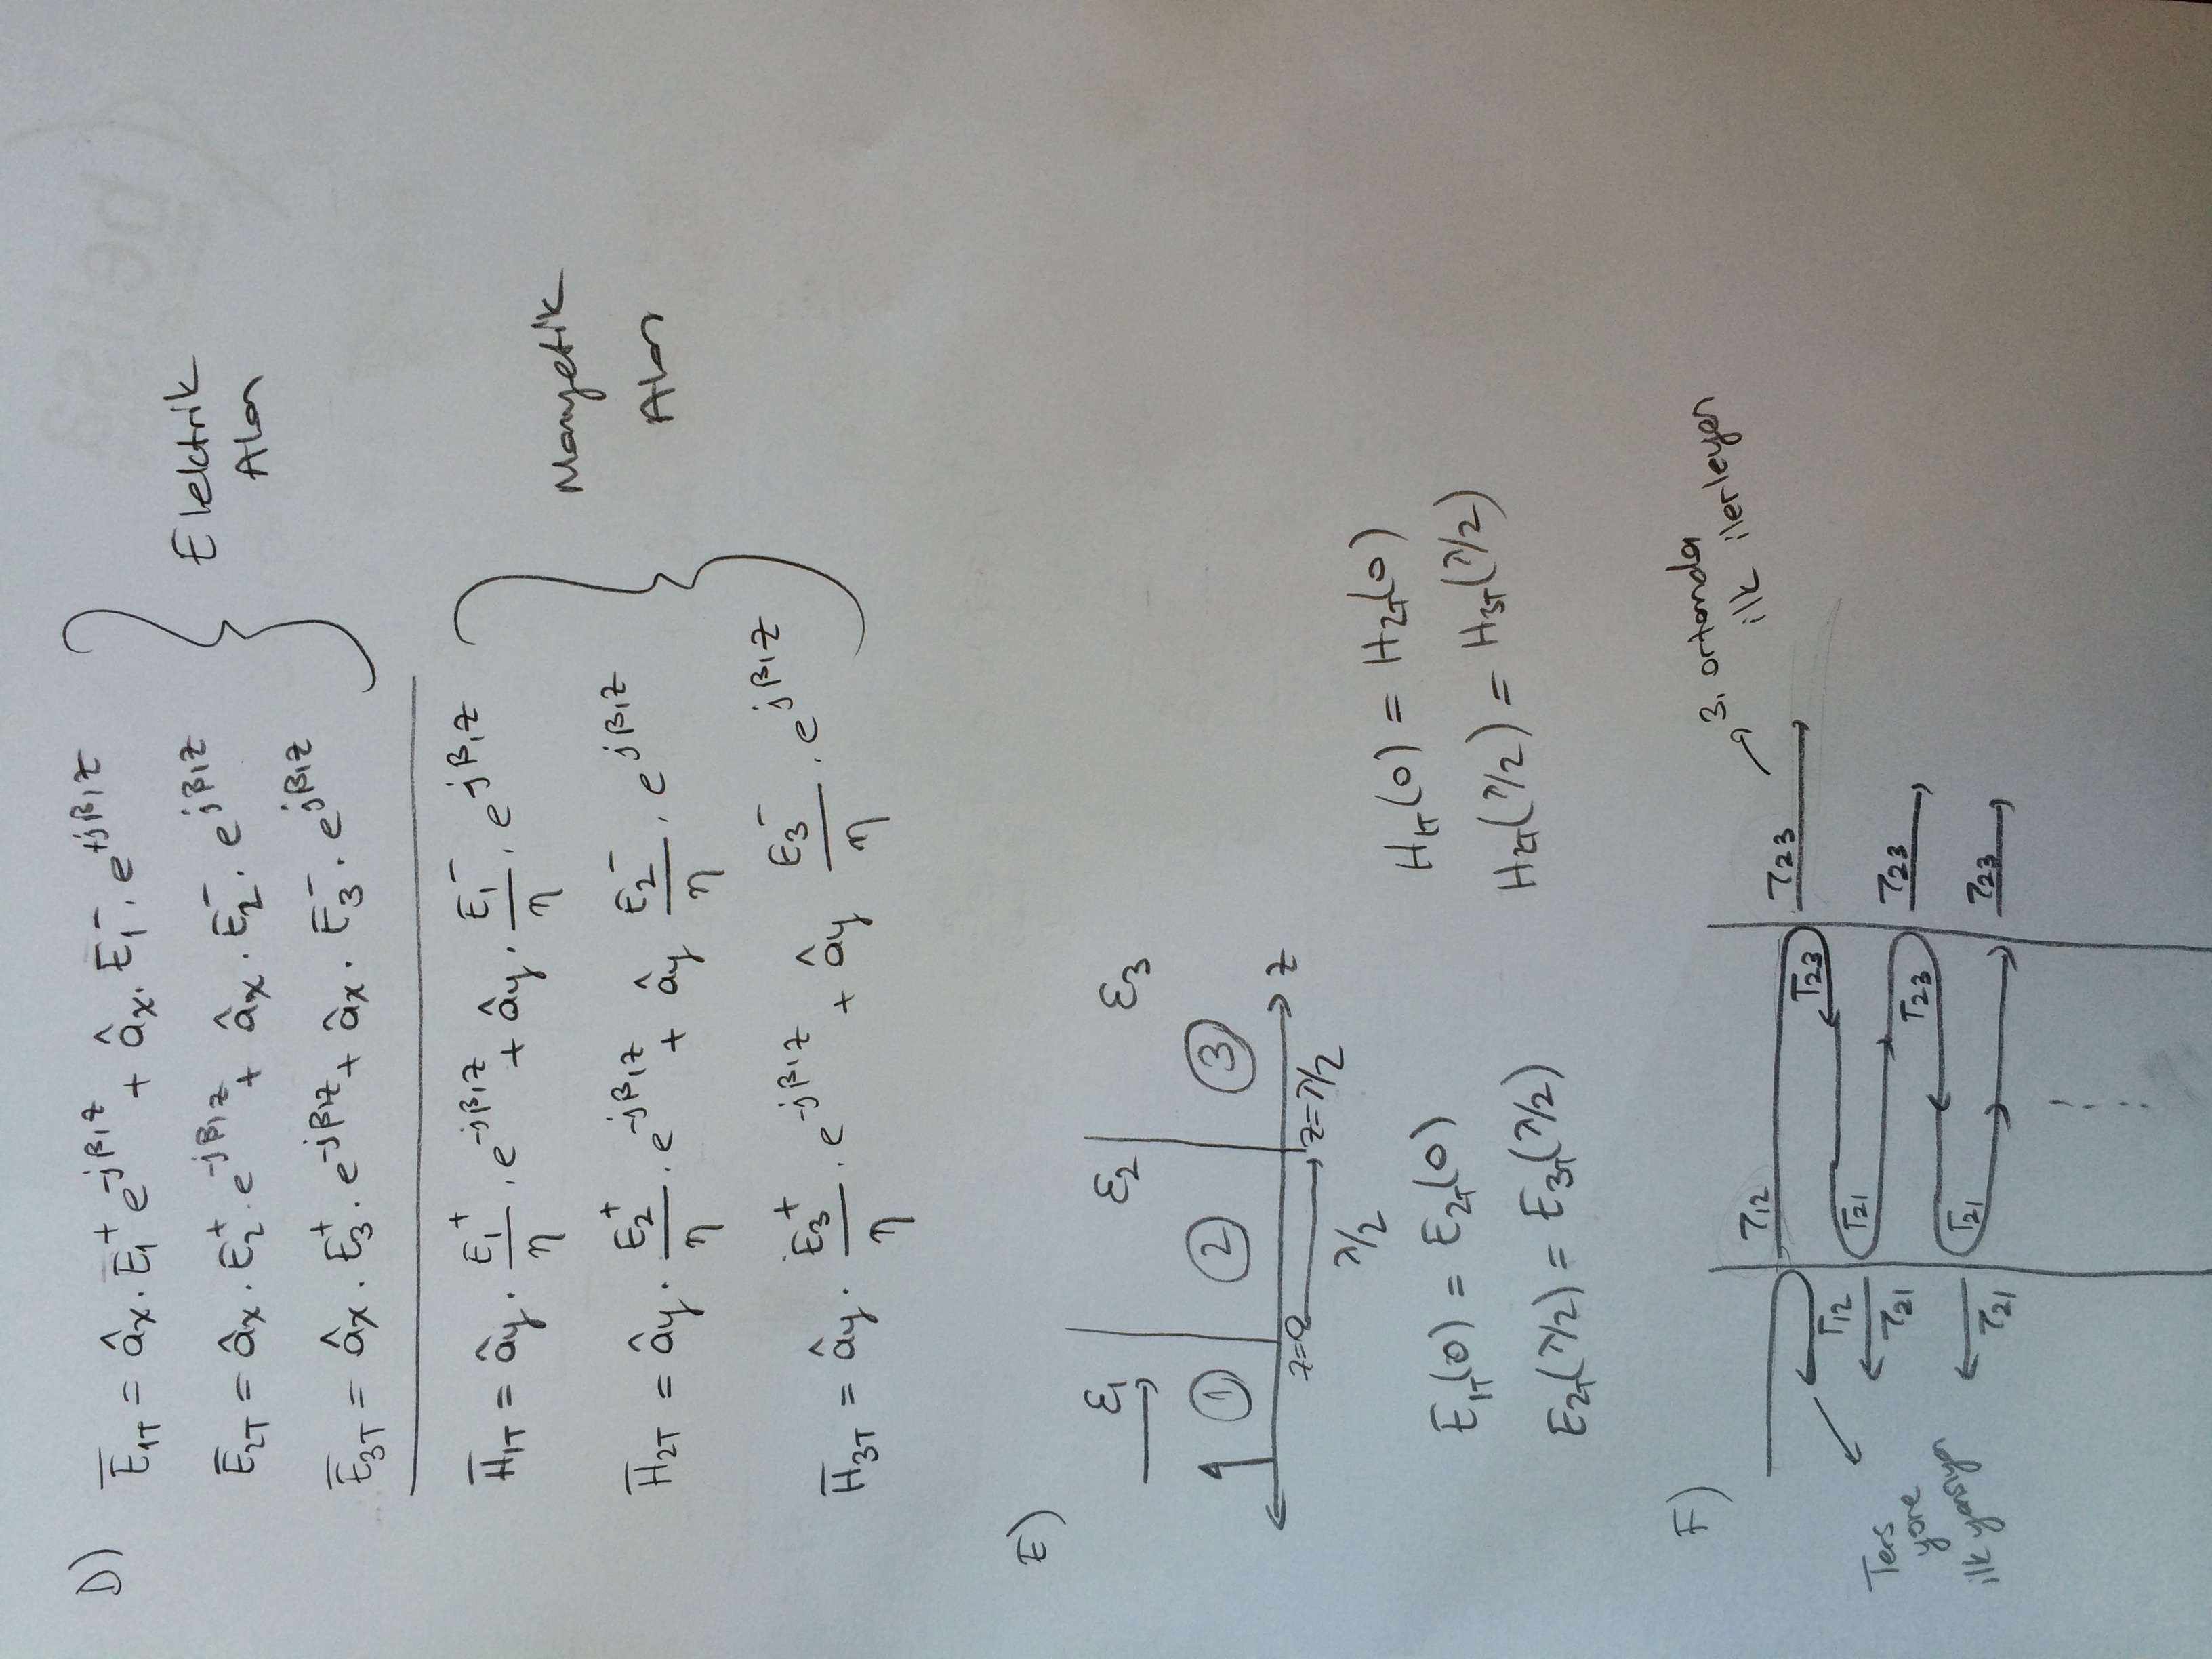 D) E̅1T = âx. E̅1⁺ e^-jβ1z + âx. E̅1⁻. e^+jβ1z
E̅2T = âx. E2⁺. e^-jβ1z + âx. E2⁻. e^jβ1z
E̅3T = âx. E3⁺. e^-jβ1z + âx. E3⁻. e^jβ1z
Elektrik
Alan
H̅1T = ây. E1⁺/η . e^-jβ1z + ây. E1⁻/η . e^jβ1z
H̅2T = ây. E2⁺/η . e^-jβ1z + ây E2⁻/η . e^jβ1z
H̅3T = ây. E3⁺/η . e^-jβ1z + ây E3⁻/η . e^jβ1z
Manyetik
Alan
E)
ε1 ε2 ε3
1 2 3
z
z=0 z=λ/2
λ/2
E1T(0) = E2T(0)
E2T(λ/2) = E3T(λ/2)
H1T(0) = H2T(0)
H2T(λ/2) = H3T(λ/2)
F)
3. ortamda
ilk ilerleyen
τ12 τ23
Γ23
Γ12
Γ21
τ21
τ23
Γ23
Γ21
τ21
τ23
Ters
yöne
ilk yansıyan